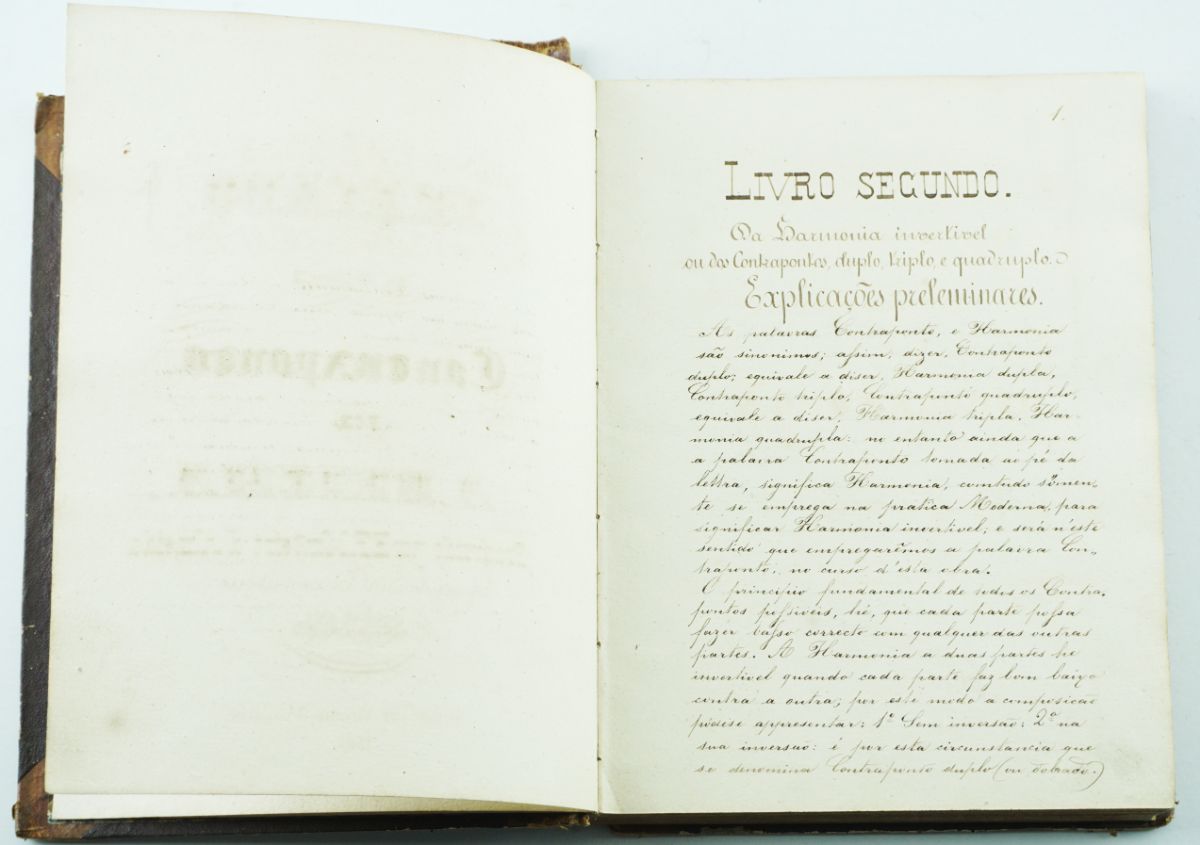 1.
LIVRO SEGUNDO.
Da Harmonia invertivel
ou dos Contrapontos, duplo, triplo, e quadruplo.
Explicações preleminares.
As palavras Contraponto, e Harmonia
são sinonimos; assim, dizer, Contraponto
duplo; equivale a diser, Harmonia dupla,
Contraponto triplo, Contraponto quadruplo,
equivale a diser, Harmonia tripla, Har-
monia quadrupla: no entanto ainda que a
a palavra Contraponto tomada ao pé da
lettra, significa Harmonia, comtudo sómen-
te se emprega na pratica Moderna, para
significar Harmonia invertivel; e será n'este
sentido que empregarêmos a palavra Con-
traponto, no curso d'esta obra.
O principio fundamental de todos os Contra-
pontos possiveis, hé, que cada parte possa
fazer basso correcto com qualquer das outras
partes. A Harmonia a duas partes he
invertivel quando cada parte faz bom baixo
contra a outra; por este modo a composicão
póde-se appresentar: 1º Sem inversão: 2º na
sua inversão: é por esta circunstancia que
se denomina Contraponto duplo (ou dobrado.)
Contraponto